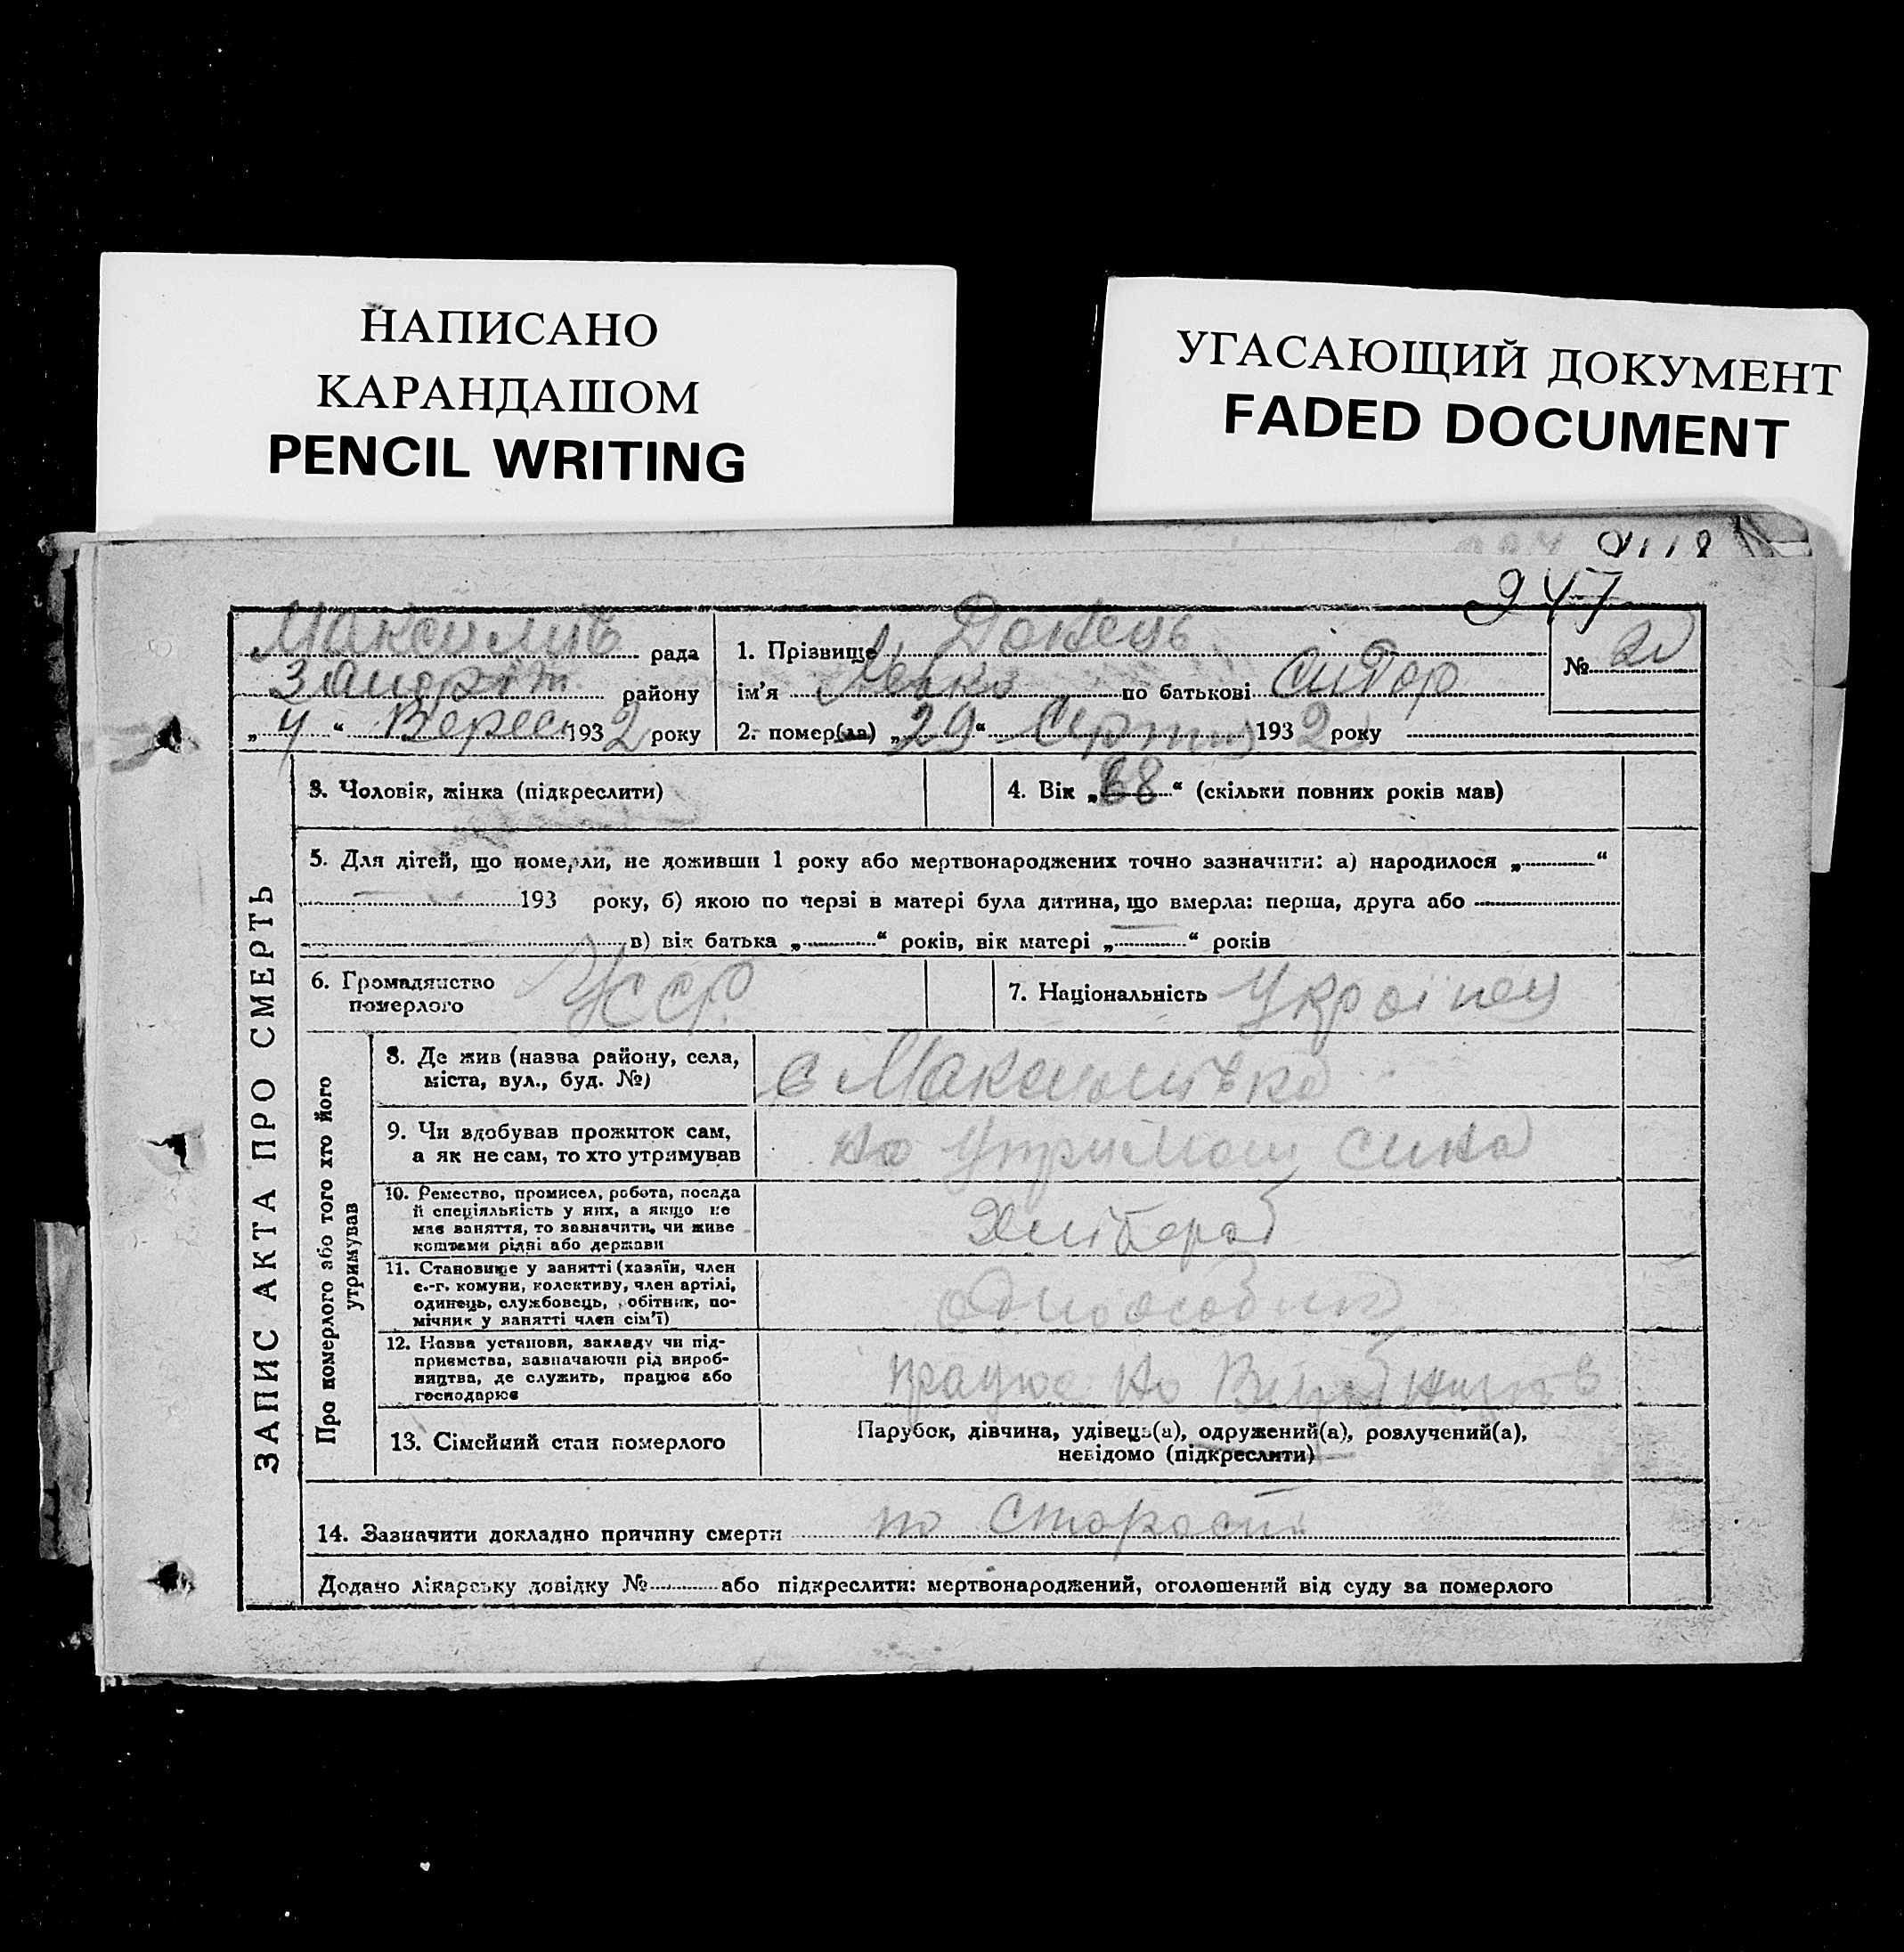 НАПИСАНО
КАРАНДАШОМ
PENCIL WRITING
УГАСАЮЩИЙ ДОКУМЕНТ
FADED DOCUMENT
947
рада
району
„ 4 “ Верес 1932 року
1. Прізвище Донець
ім'я Левко по батькові Сидор
№
2. помер(ла) „29“ Серпня 1932 року
ЗАПИС АКТА ПРО СМЕРТЬ
3. Чоловік, жінка (підкреслити)
4. Вік „68“ (скільки повних років мав)
5. Для дітей, що померли, не доживши 1 року або мертвонароджених точно зазначити: а) народилося „ “
193 року, б) якою по черзі в матері була дитина, що вмерла: перша, друга або
в) вік батька „ “ років, вік матері „ “ років
6. Громадянство
померлого
УССР
7. Національність Украінец
Про померлого або того хто його
утримував
8. Де жив (назва району, села,
міста, вул., буд. №)
с Максимівка
9. Чи здобував прожиток сам,
а як не сам, то хто утримував
на утриман сина
10. Ремество, промисел, робота, посада
й спеціяльність у них, а якщо не
має заняття, то зазначити, чи живе
коштами рідні або держави
Хлібороб
11. Становище у занятті (хазяїн, член
с.-г. комуни, колективу, член артілі,
одинець, службовець, робітник, по-
мічник у занятті член сім'ї)
одноособник
12. Назва установи, закладу чи під-
приємства, зазначаючи рід вироб-
ництва, де служить, працює або
господарює
працює на
13. Сімейний стан померлого
Парубок, дівчина, удівець(а), одружений(а), розлучений(а),
невідомо (підкреслити)
14. Зазначити докладно причину смерти по старости
Додано лікарську довідку № або підкреслити: мертвонароджений, оголошений від суду за померлого